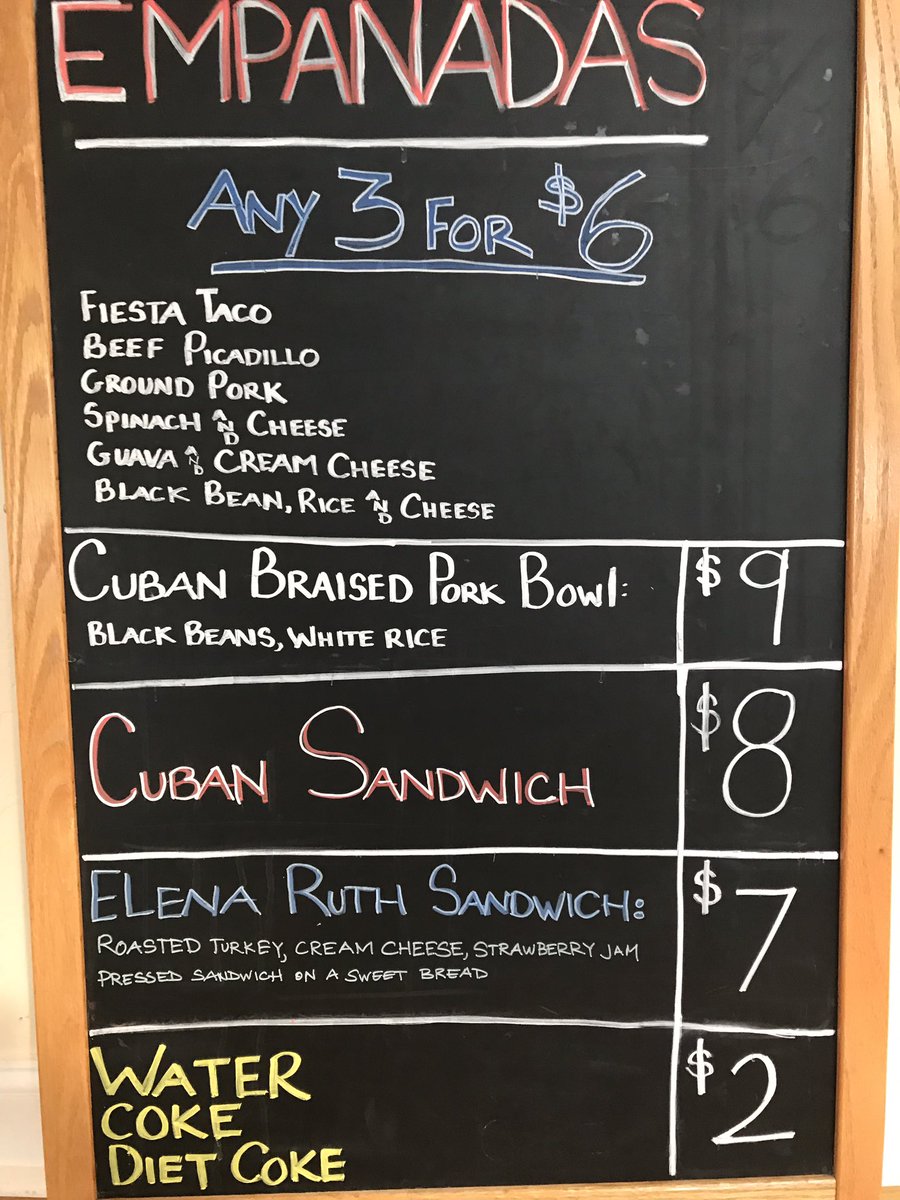 EMPANADAS
ANY 3 FOR $6
FIESTA TACO
BEEF PICADILLO
GROUND PORK
SPINACH AND CHEESE
GUAVA AND CREAM CHEESE
BLACK BEAN, RICE AND CHEESE
CUBAN BRAISED PORK BOWL: $9
BLACK BEANS, WHITE RICE
CUBAN SANDWICH $8
ELENA RUTH SANDWICH: $7
ROASTED TURKEY, CREAM CHEESE, STRAWBERRY JAM
PRESSED SANDWICH ON A SWEET BREAD
WATER $2
COKE
DIET COKE